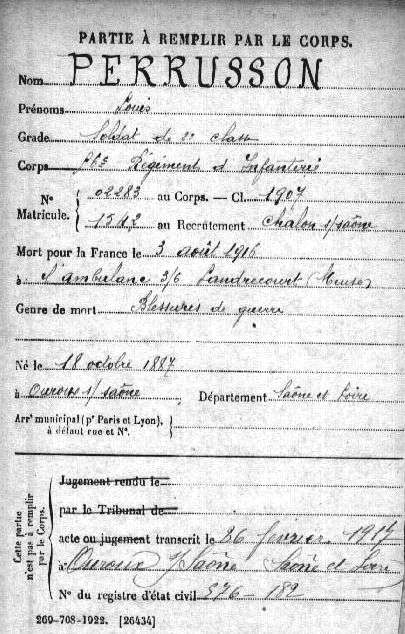 PARTIE À REMPLIR PAR LE CORPS.
Nom PERRUSSON
Prénoms Louis
Grade Soldat de 2e classe
Corps Régiment d'Infanterie
No Matricule. 02283 au Corps. — Cl. 1907
1542 au Recrutement Chalon s/saône
Mort pour la France le 3 août 1916
à l'ambulance 3/6 Landrecourt (Meuse)
Genre de mort Blessures de guerre
Né le 18 octobre 1887
à Ouroux s/saône Département Saône et Loire
Arrt municipal (pr Paris et Lyon),
à défaut rue et No.
Cette partie
n'est pas à remplir
par le Corps.
Jugement rendu le
par le Tribunal de
acte ou jugement transcrit le 26 février 1917
à Ouroux s/Saône Saône et Loire
No du registre d'état civil 182
269-708-1922. [26434]